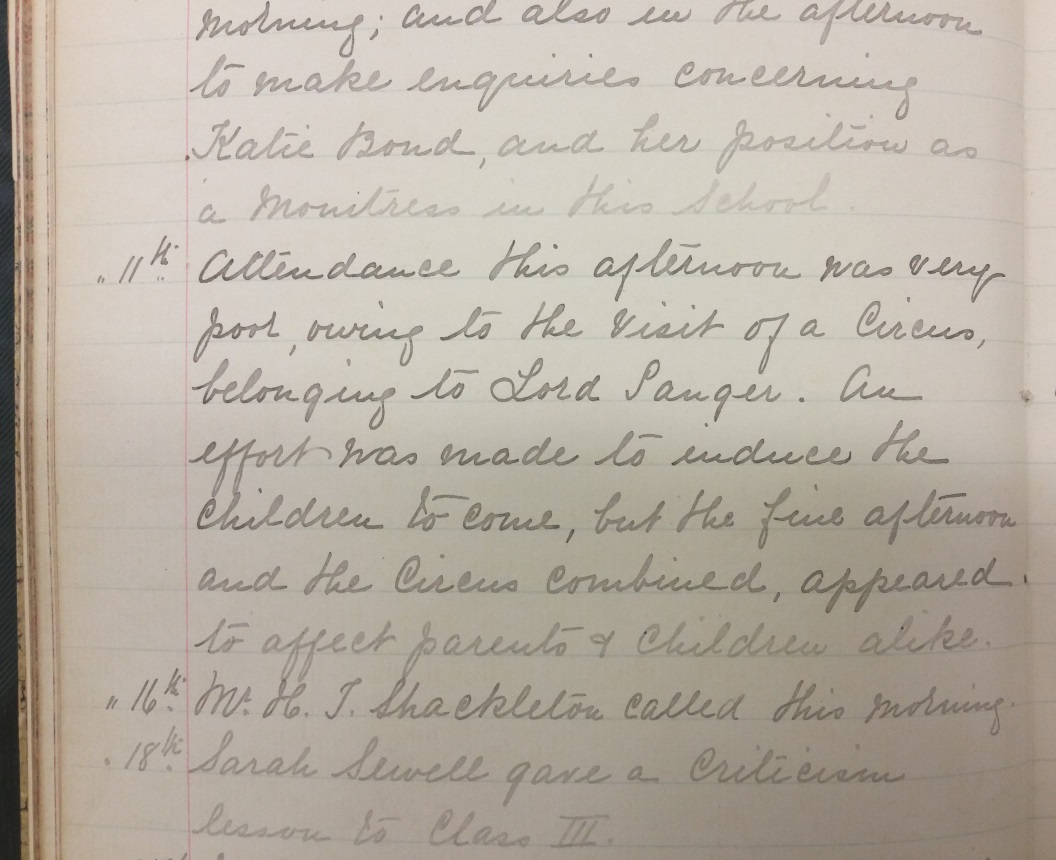 morning; and also in the afternoon
to make enquiries concerning
Katie Bond, and her position as
a Monitress in this School.
" 11th Attendance this afternoon was very
poor, owing to the visit of a Circus,
belonging to Lord Sanger. An
effort was made to induce the
children to come, but the fine afternoon
and the Circus combined, appeared
to affect parents & Children alike.
" 16th Mr. H. T. Shackleton called this morning.
" 18th Sarah Sewell gave a Criticism
lesson to Class III.